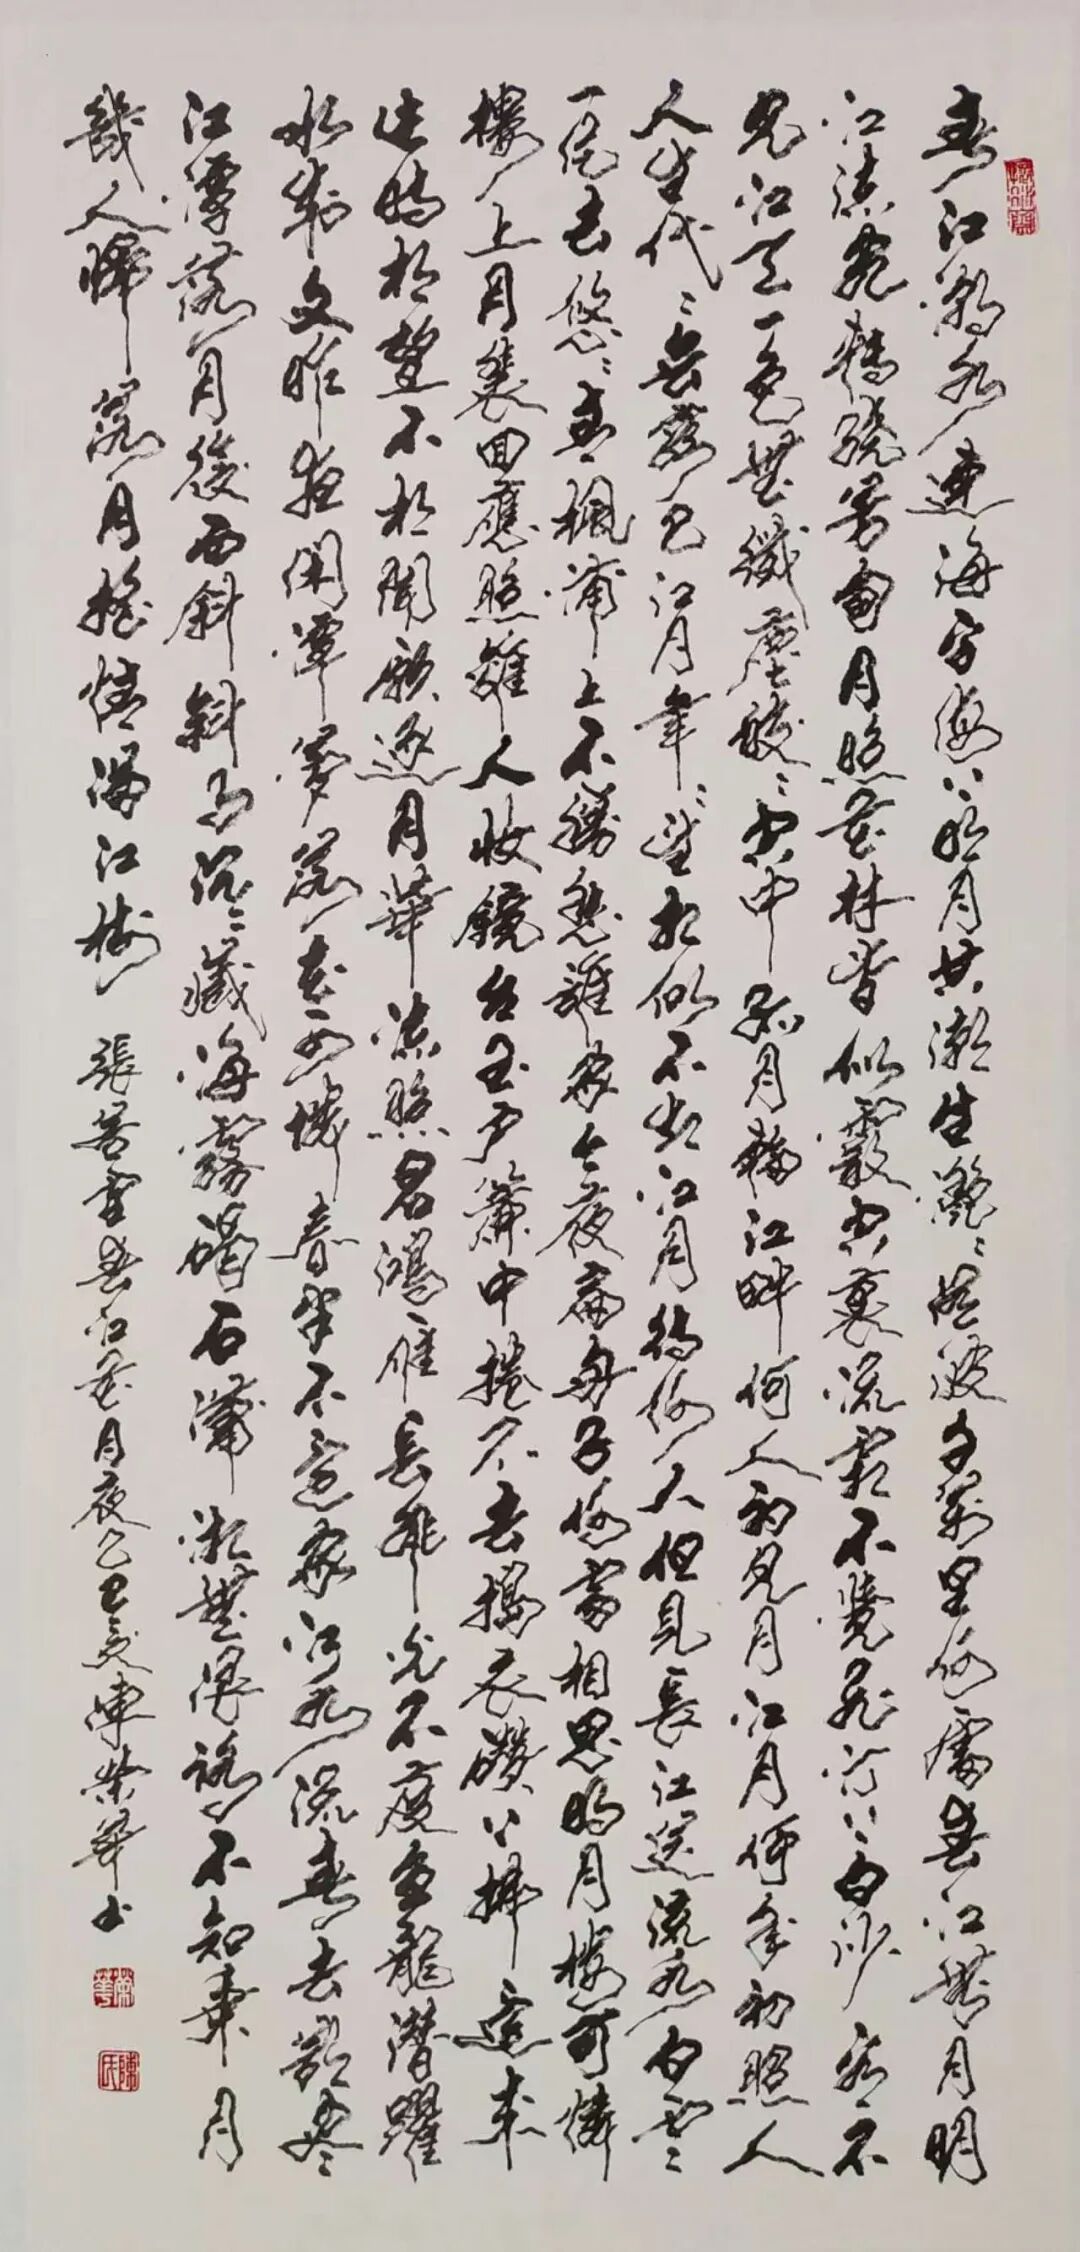 春江潮水連海平海上明月共潮生灩〻隨波千萬里何處春江無月明
江流宛轉繞芳甸月照花林皆似霰空裏流霜不覺飛汀上白沙看不
見江天一色無纖塵皎〻空中孤月輪江畔何人初見月江月何年初照人
人生代〻無窮已江月年〻望相似不知江月待何人但見長江送流水白雲
一片去悠〻青楓浦上不勝愁誰家今夜扁舟子何處相思明月樓可憐
樓上月裴回應照離人妝鏡台玉戶簾中捲不去搗衣砧上拂還來
此時相望不相聞願逐月華流照君鴻雁長飛光不度魚龍潛躍
水成文昨夜閑潭夢落花可憐春半不還家江水流春去欲盡
江潭落月復西斜斜月沉〻藏海霧碣石瀟湘無限路不知乘月
幾人歸落月搖情滿江樹 張若虛春江花月夜乙巳夏陳榮華書
榮華
陳氏